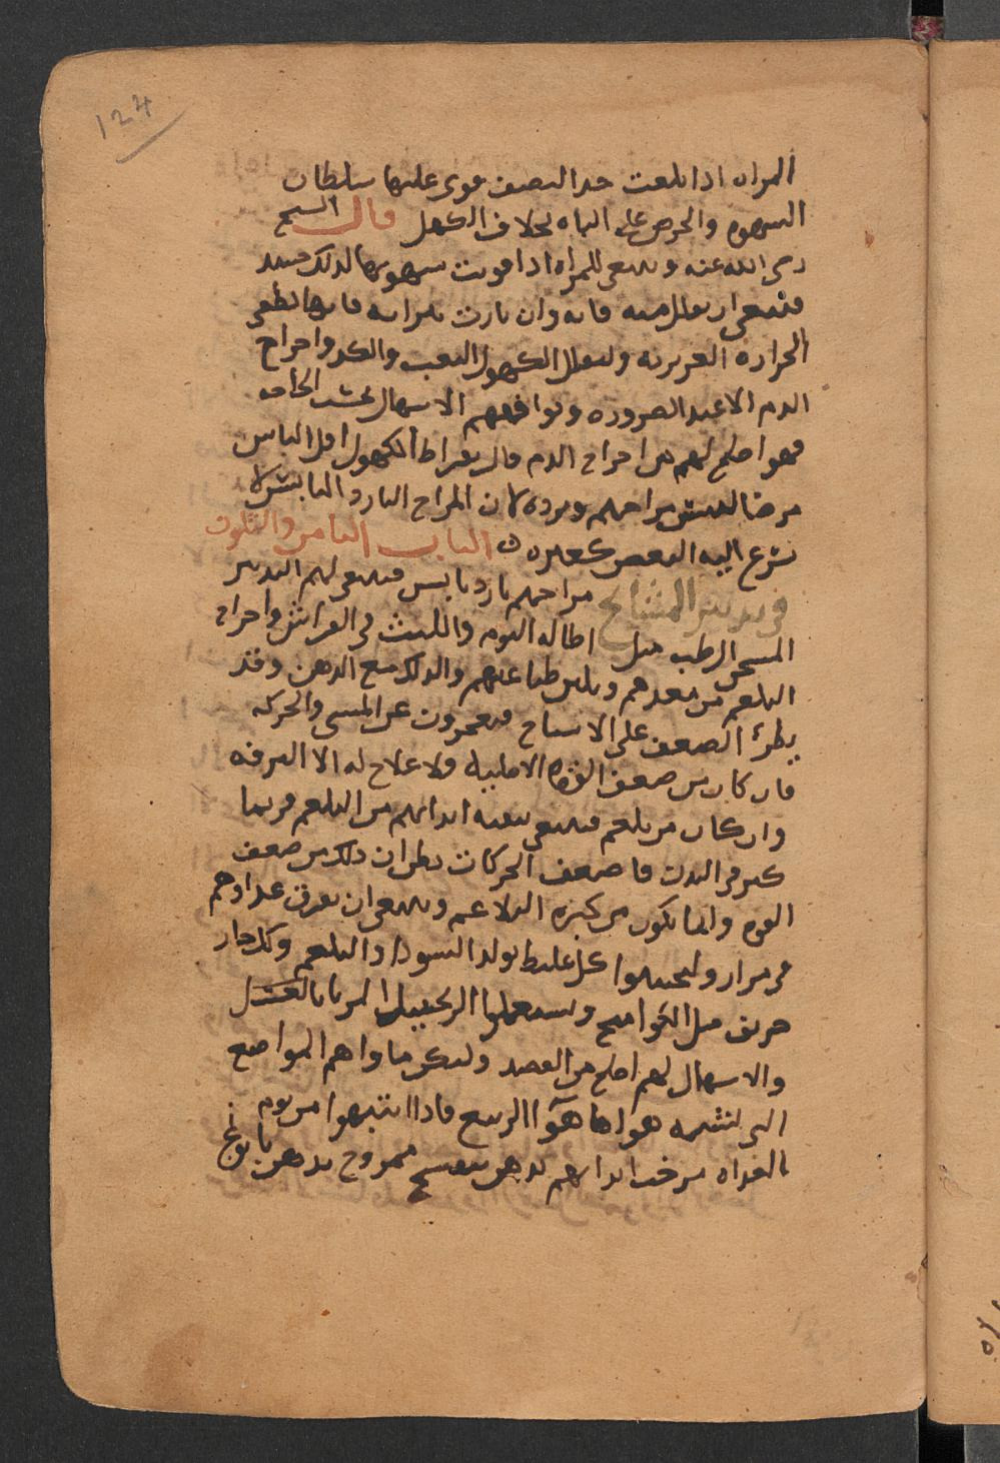 124
المراه اذا بلغت حد النصف قوى عليها سلطان
الشهوه والحرص على الباه بخلاف الكهل قال الشيخ
رضى الله عنه وينبغى للمراه اذا قويت شهوتها لذلك
فينبغى ان يقلل منه فانه وان فانها تطفى
الحراره الغريزيه وليقلل الكهول التعب والكد واخراج
الدم الا عند الضروره ويوافقهم الاسهال بحسب الحاجه
فهو اصلح لهم من اخراج الدم قال بقراط الكهول اقل الناس
مرضا ليبس مزاجهم وبرده لان المزاج البارد اليابس لا
يسرع اليه التعفن كغيره الباب الثامن والثلثون
فى تدبير المشايخ مزاجهم بارد يابس فينبغى لهم التدبير
المسخن الرطب مثل اطاله النوم واللبث فى الفراش واخراج
البلغم من معدهم وتليين طباعهم والدلك مع الدهن وقد
يطرئ الضعف على الاشياخ فيعجزون عن المشى والحركه
فان كان من ضعف القوه الاصليه فلا علاج له الا الترفه
وان كان من بلغم فينبغى تنقيه ابدانهم من البلغم فربما
كثر فى البدن فاضعف الحركات يظن ان ذلك من ضعف
القوه وانما يكون من كثره البلاغم وينبغى ان يفرق غداوهم
فى مرار وليجتنبوا كل غليظ يولد السودا والبلغم وكل حار
حريف مثل الكواميخ ويستعملوا الزنجبيل المربا بالعسل
والاسهال لهم اصلح من الفصد وليكن ماواهم المواضع
التى هواها هوا الربيع فاذا انتبهوا من نوم
الغداه مرخت ابدانهم بدهن بنفسج ممزوج بدهن بابونج